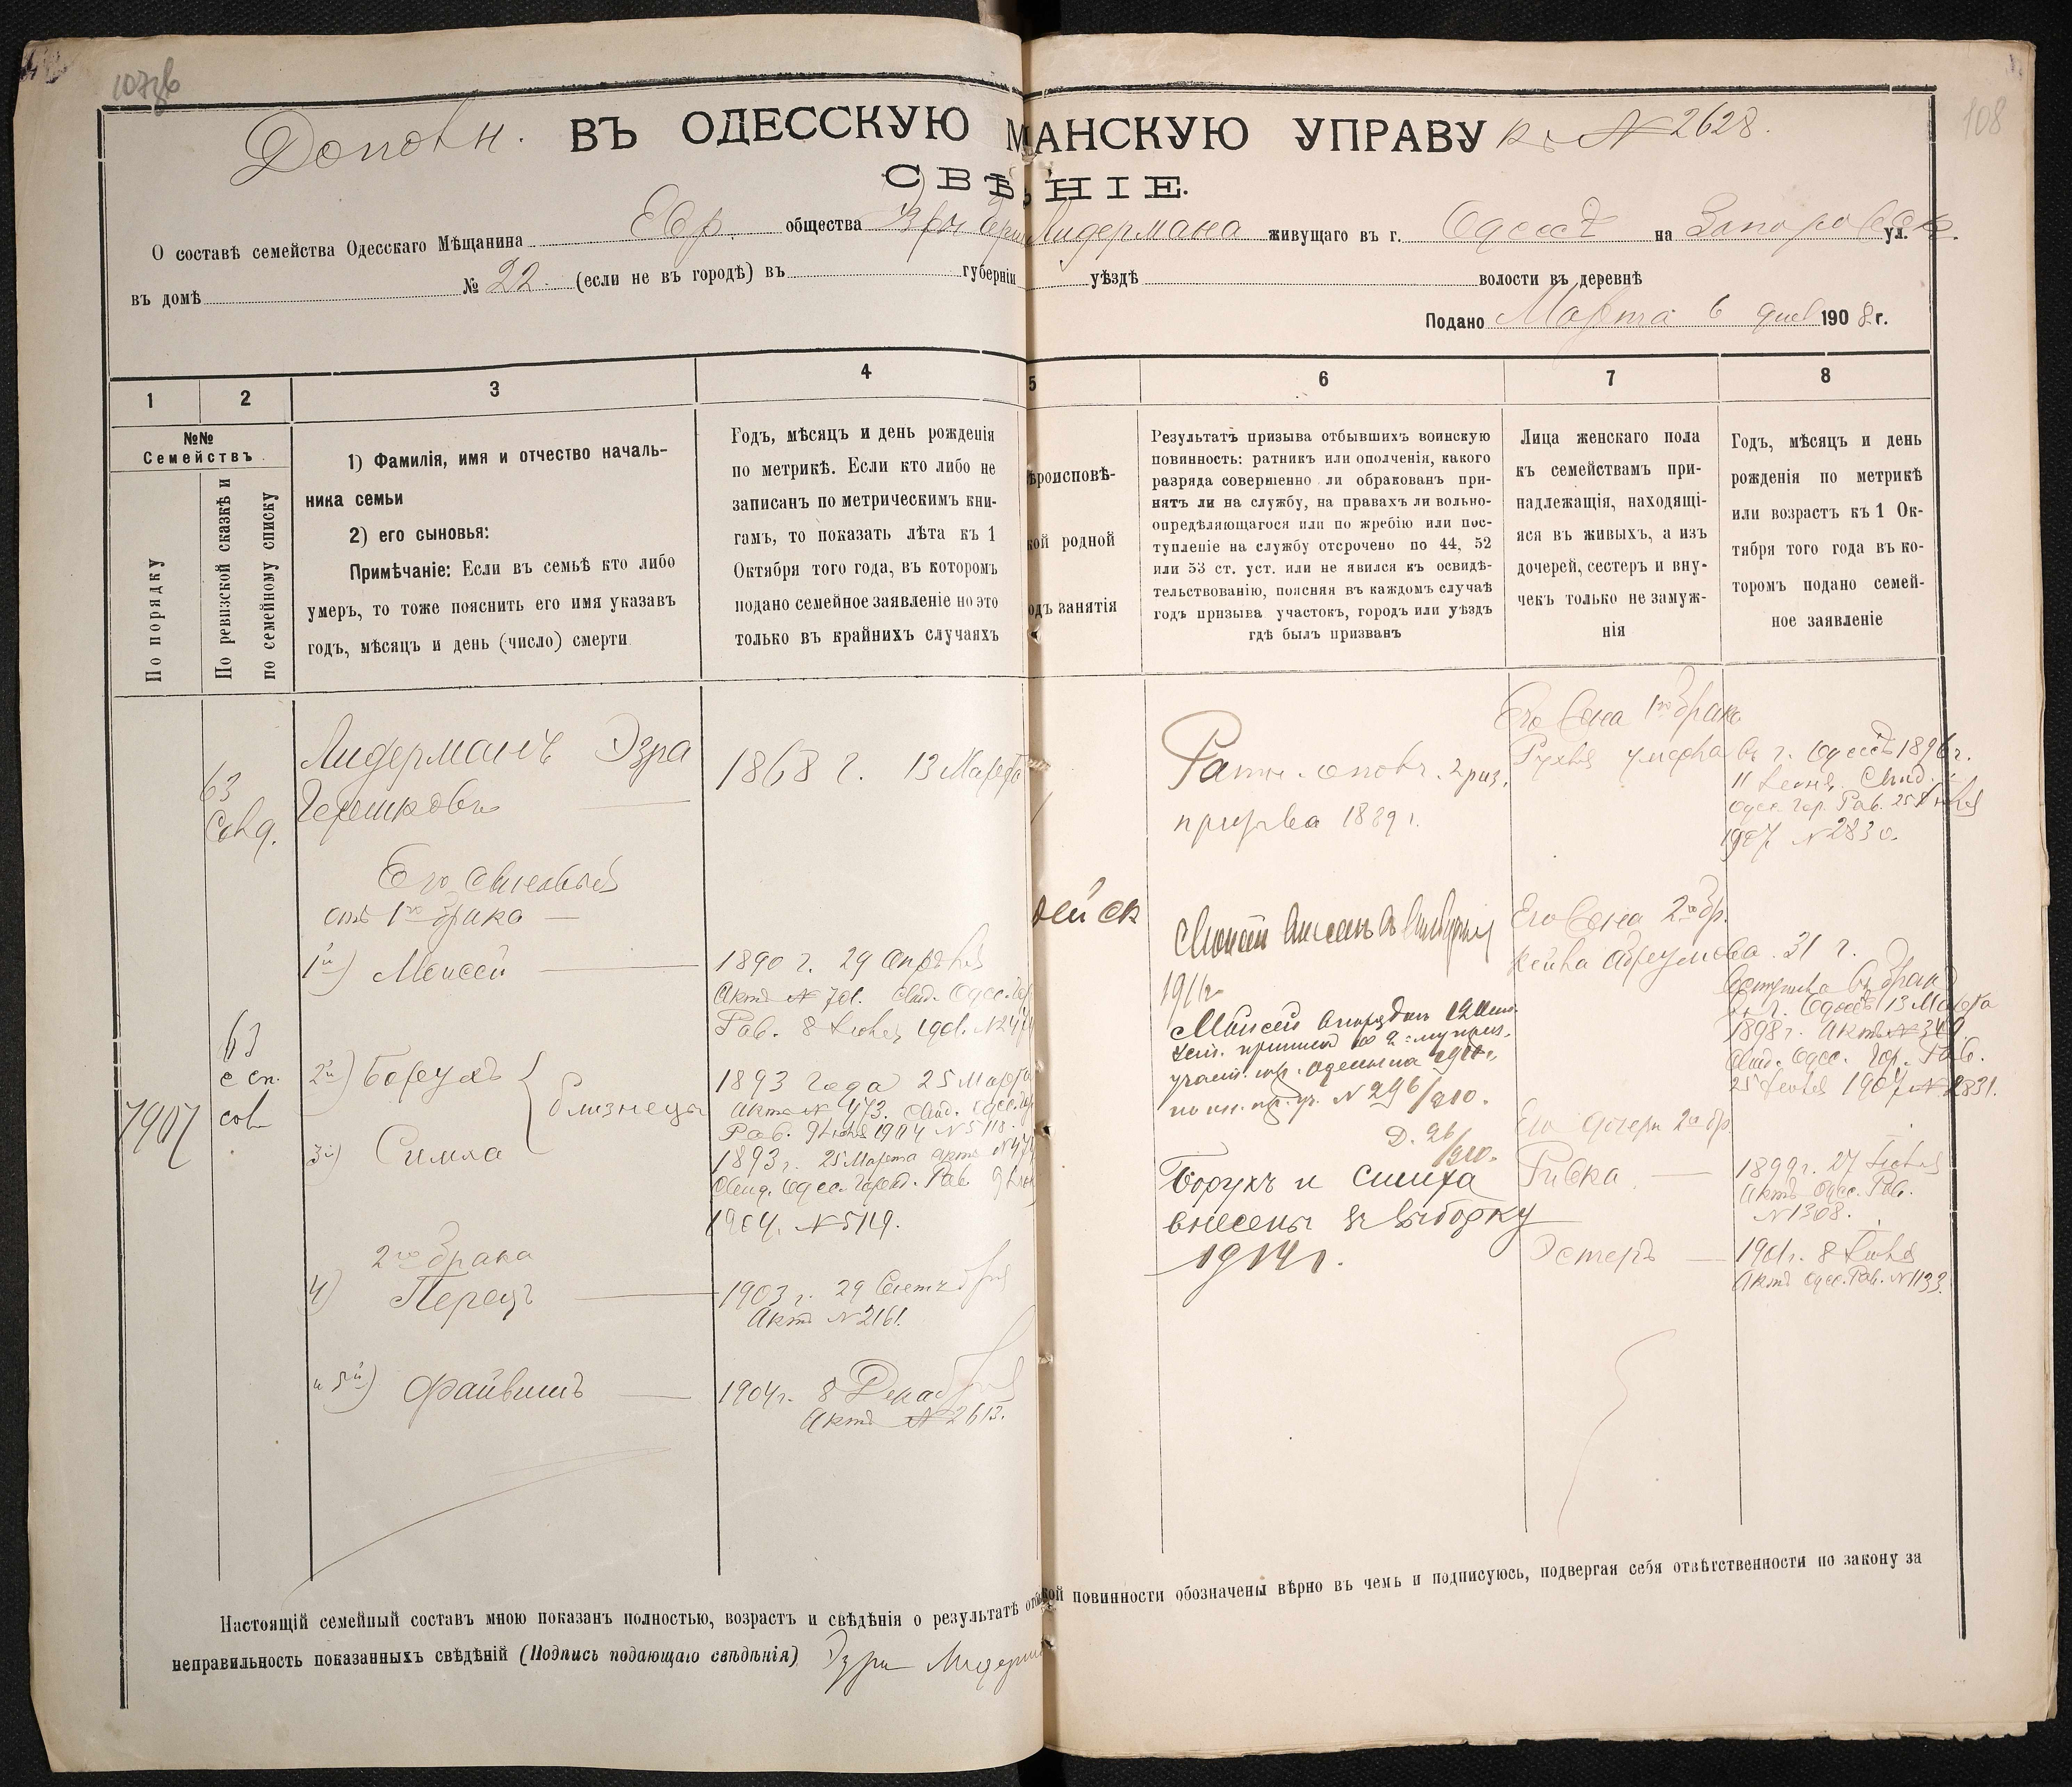 108
Дополн. ВЪ ОДЕССКУЮ МѢЩАНСКУЮ УПРАВУ къ № 2628.
СВѢ НІЕ.
О составѣ семейства Одесскаго Мѣщанина Евр. общества Лидермана живущаго въ г. Одессѣ на Запорожск. ул.
въ домѣ № 22. (если не въ городѣ) въ губерніи уѣздѣ волости въ деревнѣ
Подано Марта 6 дня 1908 г.
1 2 3 4 5 6 7 8
№№
Семействъ
По порядку
По ревизской сказкѣ и
по семейному списку
1) Фамилія, имя и отчество началь-
ника семьи
2) его сыновья:
Примѣчаніе: Если въ семьѣ кто либо
умеръ, то тоже пояснить его имя указавъ
годъ, мѣсяцъ и день (число) смерти
Годъ, мѣсяцъ и день рожденія
по метрикѣ. Если кто либо не
записанъ по метрическимъ кни-
гамъ, то показать лѣта къ 1
Октября того года, въ которомъ
подано семейное заявленіе но это
только въ крайнихъ случаяхъ
ѣроисповѣ-
кой родной
одъ занятія
Результатъ призыва отбывшихъ воинскую
повинность: ратникъ или ополченія, какого
разряда совершенно ли обракованъ при-
нятъ ли на службу, на правахъ ли вольно-
опредѣляющагося или по жребію или пос-
тупленіе на службу отсрочено по 44, 52
или 53 ст. уст. или не явился къ освидѣ-
тельствованію, поясняя въ каждомъ случаѣ
годъ призыва участокъ, городъ или уѣздъ
гдѣ былъ призванъ
Лица женскаго пола
къ семействамъ при-
надлежащія, находящі-
яся въ живыхъ, а изъ
дочерей, сестеръ и вну-
чекъ только не замуж-
нія
Годъ, мѣсяцъ и день
рожденія по метрикѣ
или возрастъ къ 1 Ок-
тября того года въ ко-
торомъ подано семей-
ное заявленіе
63
Лидерманъ Эзра
Гершковъ
1868 г. 13 Марта
Его сыновья
отъ 1го брака
1й) Моисей
1890 г. 29 Апрѣля
Актъ № 701. Свид. Одес. Гор.
Раб. 8 Іюля 1901.
63
с сп.
2й) Борухъ
близнецы
1893 года 25 Марта
Актъ № 473. Свид. Одес. Гор.
Раб. 9 Іюля 1904 № 5118.
7907
3й) Симха
1893 г. 25 Марта актъ № 474
Свид. Одес. Город. Раб. 9 Іюл
1904. № 5119.
2го брака
4) Перецъ
1903 г. 29 Сентября
Актъ № 2161.
и 5й) Файвишъ
1904 г. 8 Декабря
Актъ № 2613.
ейск
Ратн. ополч. 2 раз.
призыва 1889 г.
Моисей
1911
Моисей
№ 296/910.
Д. 26/910.
Борухъ и Симха
внесены въ выборку
1914 г.
Его жена 1го брака
Рухля умерла въ г. Одессѣ 1896 г.
11 Іюня, Свид.
Одес. Гор. Раб. 25 Іюля
1907 № 2830
Его жена 2го бр.
Абрумова. 31 г.
вступила въ бракъ
въ г. Одессѣ 13 Марта
1898 г. Актъ № 349.
Свид. Одес. Гор. Раб.
25 Іюля 1907 № 2831.
Его дочери 2го бр.
Ривка
1899 г. 27 Іюля
Актъ Одес. Раб.
№ 1308.
Эстеръ
1901 г. 8 Іюля
Актъ Одес. Раб. № 1133.
Настоящій семейный составъ мною показанъ полностью, возрастъ и свѣдѣнія о результатѣ от кой повинности обозначены вѣрно въ чемъ и подписуюсь, подвергая себя отвѣтственности по закону за
неправильность показанныхъ свѣдѣній (Подпись подающаго свѣдѣнія)